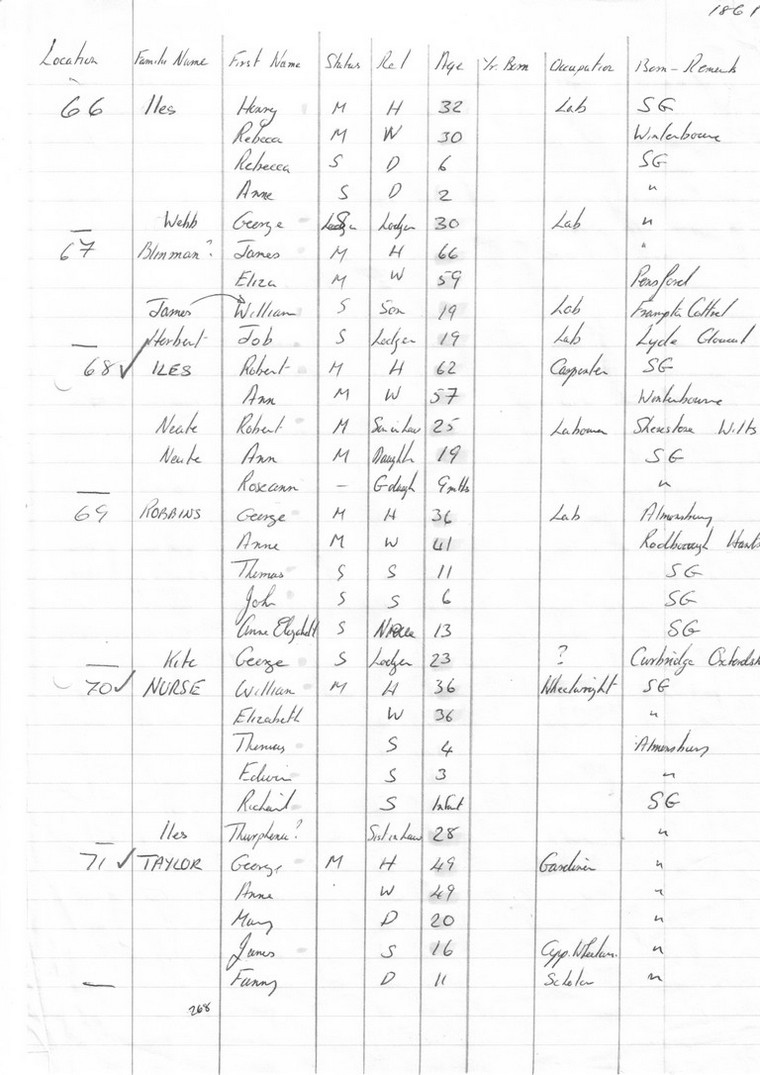 1861
Location Family Name First Name Status Rel Age Yr. Born Occupation Born - Remarks
66 Iles Henry M H 32 Lab SG
Rebecca M W 30 Winterbourne
Rebecca S D 6 SG
Anne S D 2 "
Webb George S Lodger 30 Lab "
67 Blinman? James M H 66 "
Eliza M W 59 Pensford
James William S Son 19 Lab Frampton Cottrel
Herbert Job S Lodger 19 Lab Lyde
68 ✓ ILES Robert M H 62 Carpenter SG
Ann M W 57 Winterbourne
Neate Robert M Son in Law 25 Labourer Wilts
Neate Ann M Daughter 19 SG
Roseann - G daugh 9 mths "
69 ROBBINS George M H 36 Lab Almonsbury
Anne M W 41 Rodborough
Thomas S S 11 SG
John S S 6 SG
Anne Elizabeth S Niece 13 SG
Kite George S Lodger 23 ? Curbridge Oxfordsh
70 ✓ NURSE William M H 36 Wheelwright SG
Elizabeth W 36 "
Thomas S 4 Almonsbury
Edwin S 3 "
Richard S Infant SG
Iles Thurphena? Sist in Law 28 "
71 ✓ TAYLOR George M H 49 Gardiner "
Anne W 49 "
Mary D 20 "
James S 16 App. "
Fanny D 11 Scholar "
268